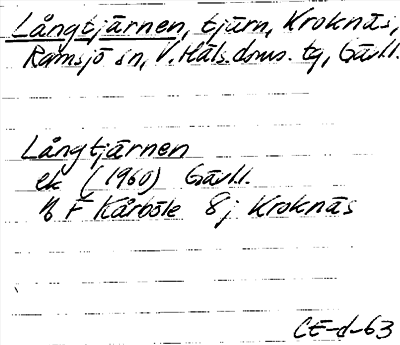 Långtjärnen, tjärn, Kroknäs,
Ramsjö sn, V. Häls. doms. tg, Gävl.l.
Långtjärnen
ek (1960) Gävl.l.
F Kårböle 8j Kroknäs
CE-d-63